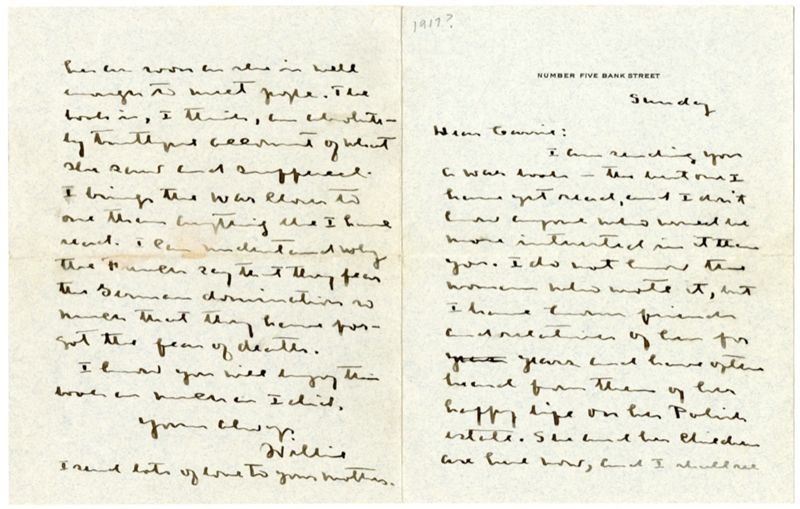 1917?
NUMBER FIVE BANK STREET
Sunday
Dear Carrie:
I am sending you
a war book — the best one I
have yet read, and I don't
know anyone who would be
more interested in it than
you. I do not know the
woman who wrote it, but
I have known friends
and relatives of her for
years and have often
heard from them of her
happy life on her Polish
estate. She and her children
are here now, and I shall see
her as soon as she is well
enough to meet people. The
book is, I think, an absolute-
ly truthful account of what
she saw and suffered.
I brings the war closer to
one than anything else I have
read. I can understand why
the French say that they fear
the German domination so
much that they have for-
got the fear of death.
I know you will enjoy this
book as much as I did.
Yours always
Willie
I send lots of love to your mother.